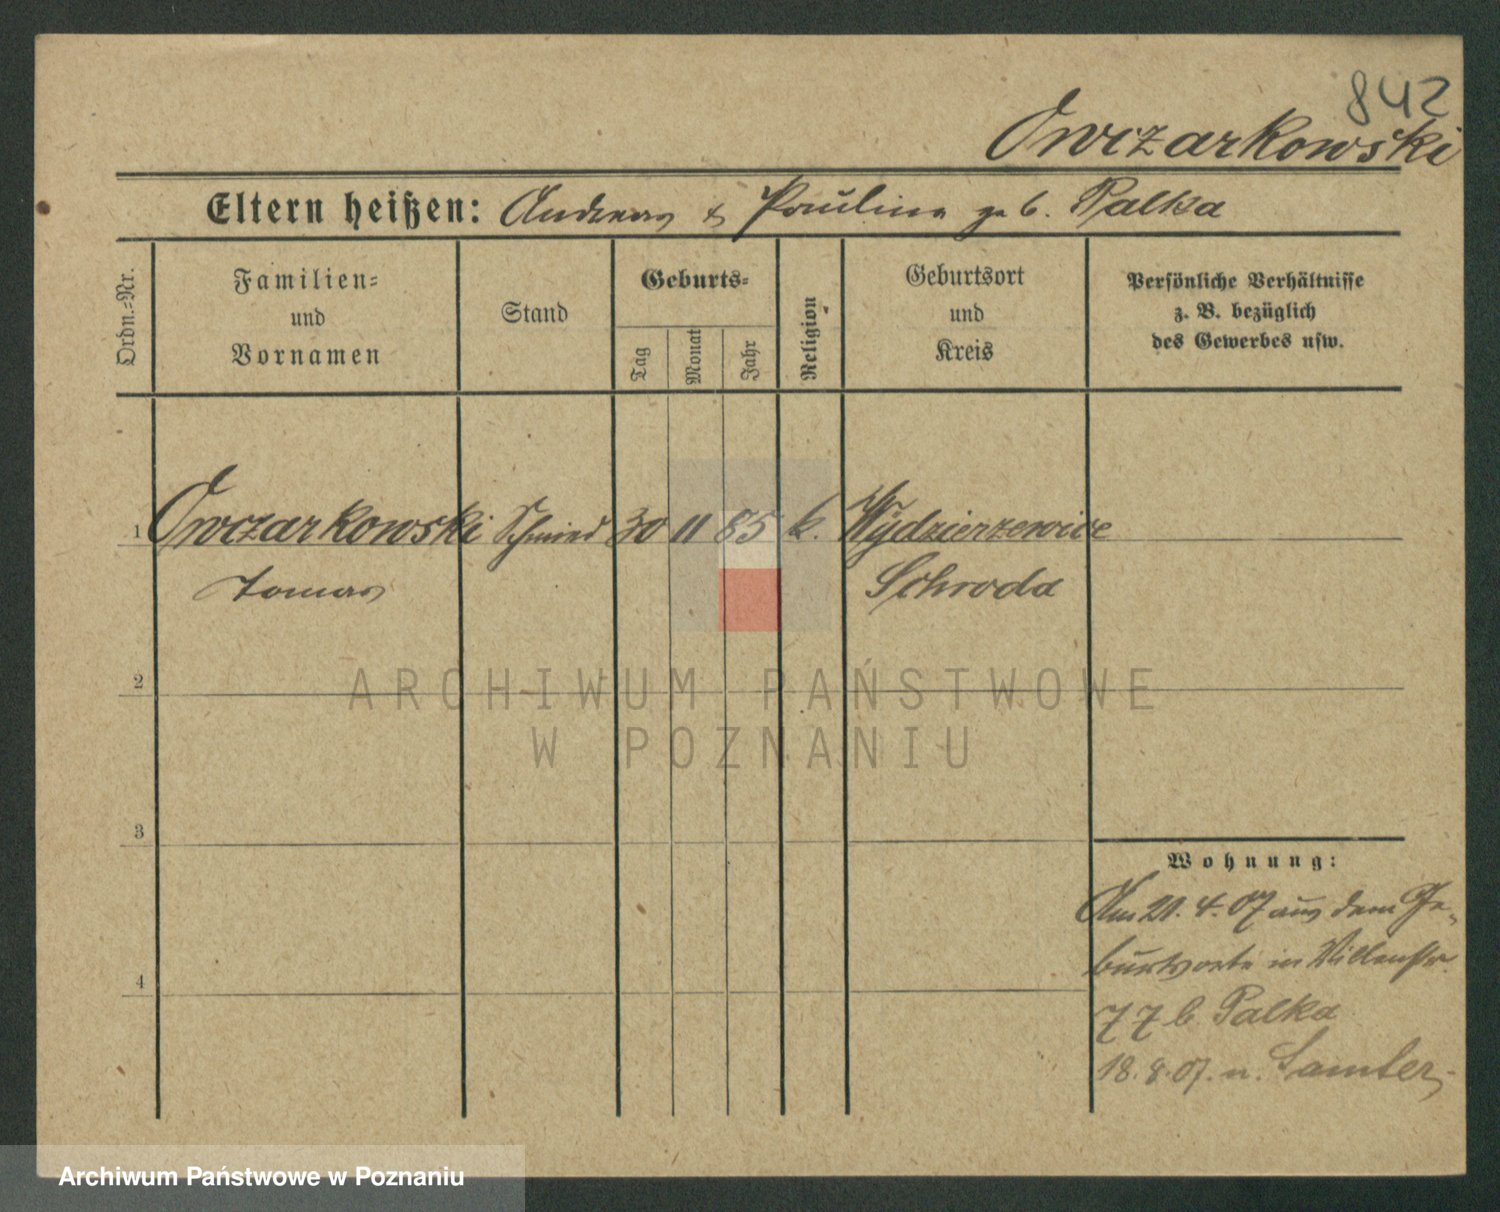 842
Owczarkowski
Eltern heißen: Andreas & Paulina geb. Palka
Ordn.=Nr.
Familien=
und
Vornamen
Stand
Geburts=
Tag
Monat
Jahr
Religion
Geburtsort
und
Kreis
Persönliche Verhältnisse
z. B. bezüglich
des Gewerbes usw.
1 Owczarkowski Schmied 30 11 85 k. Wydzierzewice
Tomas Schroda
ARCHIWUM PAŃSTWOWE
W POZNANIU
2
3
4
Wohnung:
Am 21. 4. 07 aus dem Ge-
burtsorte in Villenstr.
7 7 b Palka
18. 8. 07. n. Samter
Archiwum Państwowe w Poznaniu